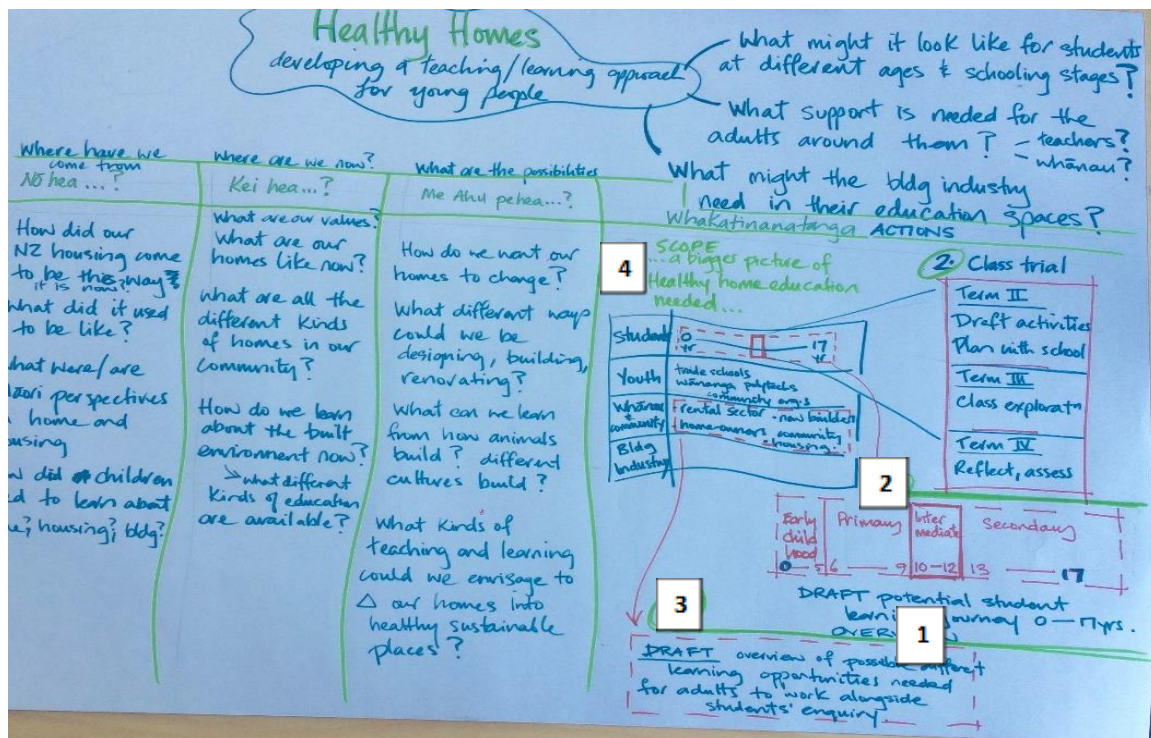 Healthy Homes
developing a teaching/learning approach
for young people
What might it look like for students
at different ages & schooling stages?
What support is needed for the
adults around them? – teachers?
– whānau?
What might the bldg industry
need in their education spaces?
Where have we
come from
Nō hea ...?
How did our
NZ housing come
to be this way
it is now?
What did it used
to be like?
What were/are
perspectives
home and
did children
to learn about
housing; bldg?
Where are we now?
Kei hea...?
What are our values?
What are our
homes like now?
What are all the
different kinds
of homes in our
community?
How do we learn
about the built
environment now?
what different
kinds of education
are available?
What are the possibilities
Me Ahu pehea...?
How do we want our
homes to change?
What different ways
could we be
designing, building,
renovating?
What can we learn
from how animals
build? different
cultures build?
What kinds of
teaching and learning
could we envisage to
Δ our homes into
healthy sustainable
places?
Whakatinanatanga ACTIONS
4
SCOPE
...a bigger picture of
Healthy home education
needed...
Student
0
yr
17
yr
Youth
trade schools
wānanga polytechs
community org.s
Whānau
+
community
- rental sector
- new builders
- home-owners
community
- housing.
Bldg
Industry
2. Class trial
Term II
Draft activities
Plan with school
Term III
Class exploratn
Term IV
Reflect, assess
2
Early
child
hood
0 — 5
Primary
6 — 9
Inter
mediate
10 – 12
Secondary
13 — 17
DRAFT potential student
journey 0 – 17yrs.
1
3
DRAFT overview of possible different
learning opportunities needed
for adults to work alongside
students' enquiry